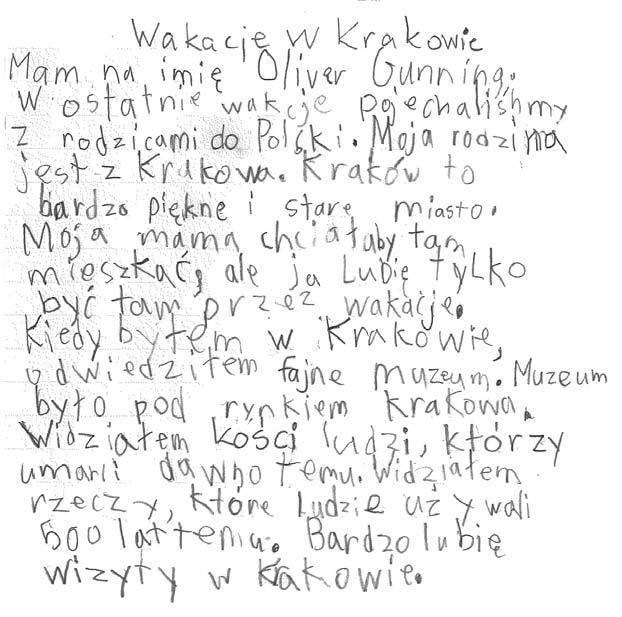 Wakacje w Krakowie
Mam na imię Oliver Gunning.
W ostatnie wakcje pojechaliśhmy
z rodzicami do Polski. Moja rodzina
jest z Krakowa. Kraków to
bardzo piękne i stare miasto.
Moja mama chciałaby tam
mieszkać, ale ja Lubię tylko
być tam przez wakacje.
Kiedy byłem w Krakowie,
odwiedziłem fajne muzeum. Muzeum
było pod rynkiem Krakowa.
Widziałem kości ludzi, którzy
umarli dawno temu. Widziałem
rzeczy, które ludzie używali
500 lat temu. Bardzo lubię
wizyty w Krakowie.